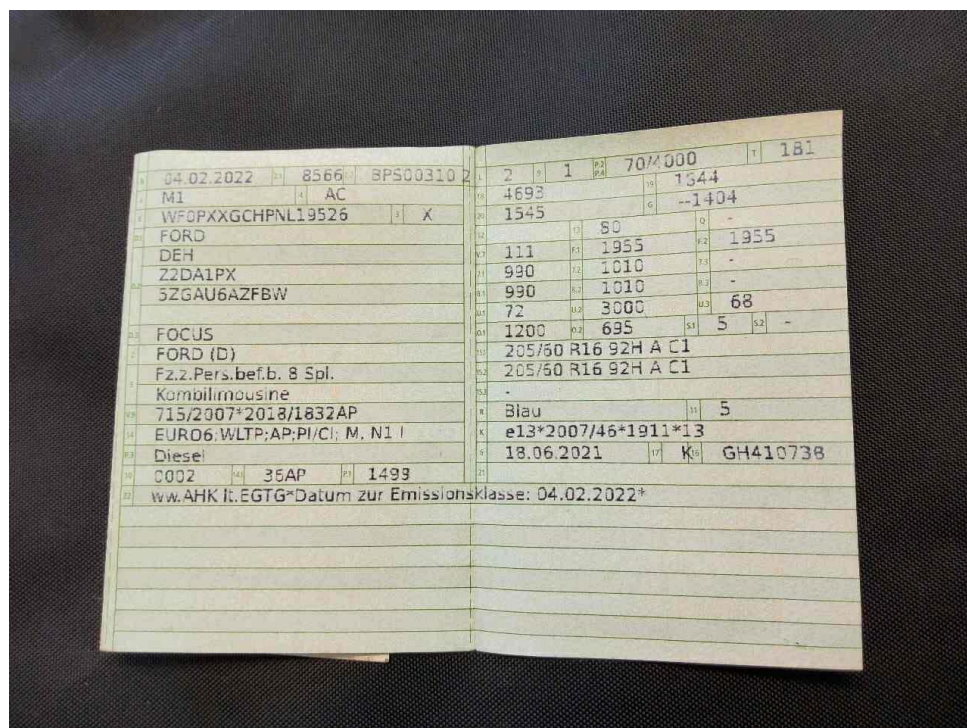 04.02.2022 8566 BPS00310 2
M1 AC
WF0PXXGCHPNL19526 X
FORD
DEH
Z2DA1PX
5ZGAU6AZFBW
FOCUS
FORD (D)
Fz.z.Pers.bef.b. 8 Spl.
Kombilimousine
715/2007*2018/1832AP
EURO6;WLTP;AP;PI/CI; M, N1 I
Diesel
0002 36AP 1499
ww.AHK lt.EGTG*Datum zur Emissionsklasse: 04.02.2022*
2 1 70/4000 181
4693 1844
1545 --1404
80 -
111 1955 1955
990 1010 -
990 1010 -
72 3000 68
1200 695 5 -
205/60 R16 92H A C1
205/60 R16 92H A C1
-
Blau 5
e13*2007/46*1911*13
18.06.2021 K GH410738